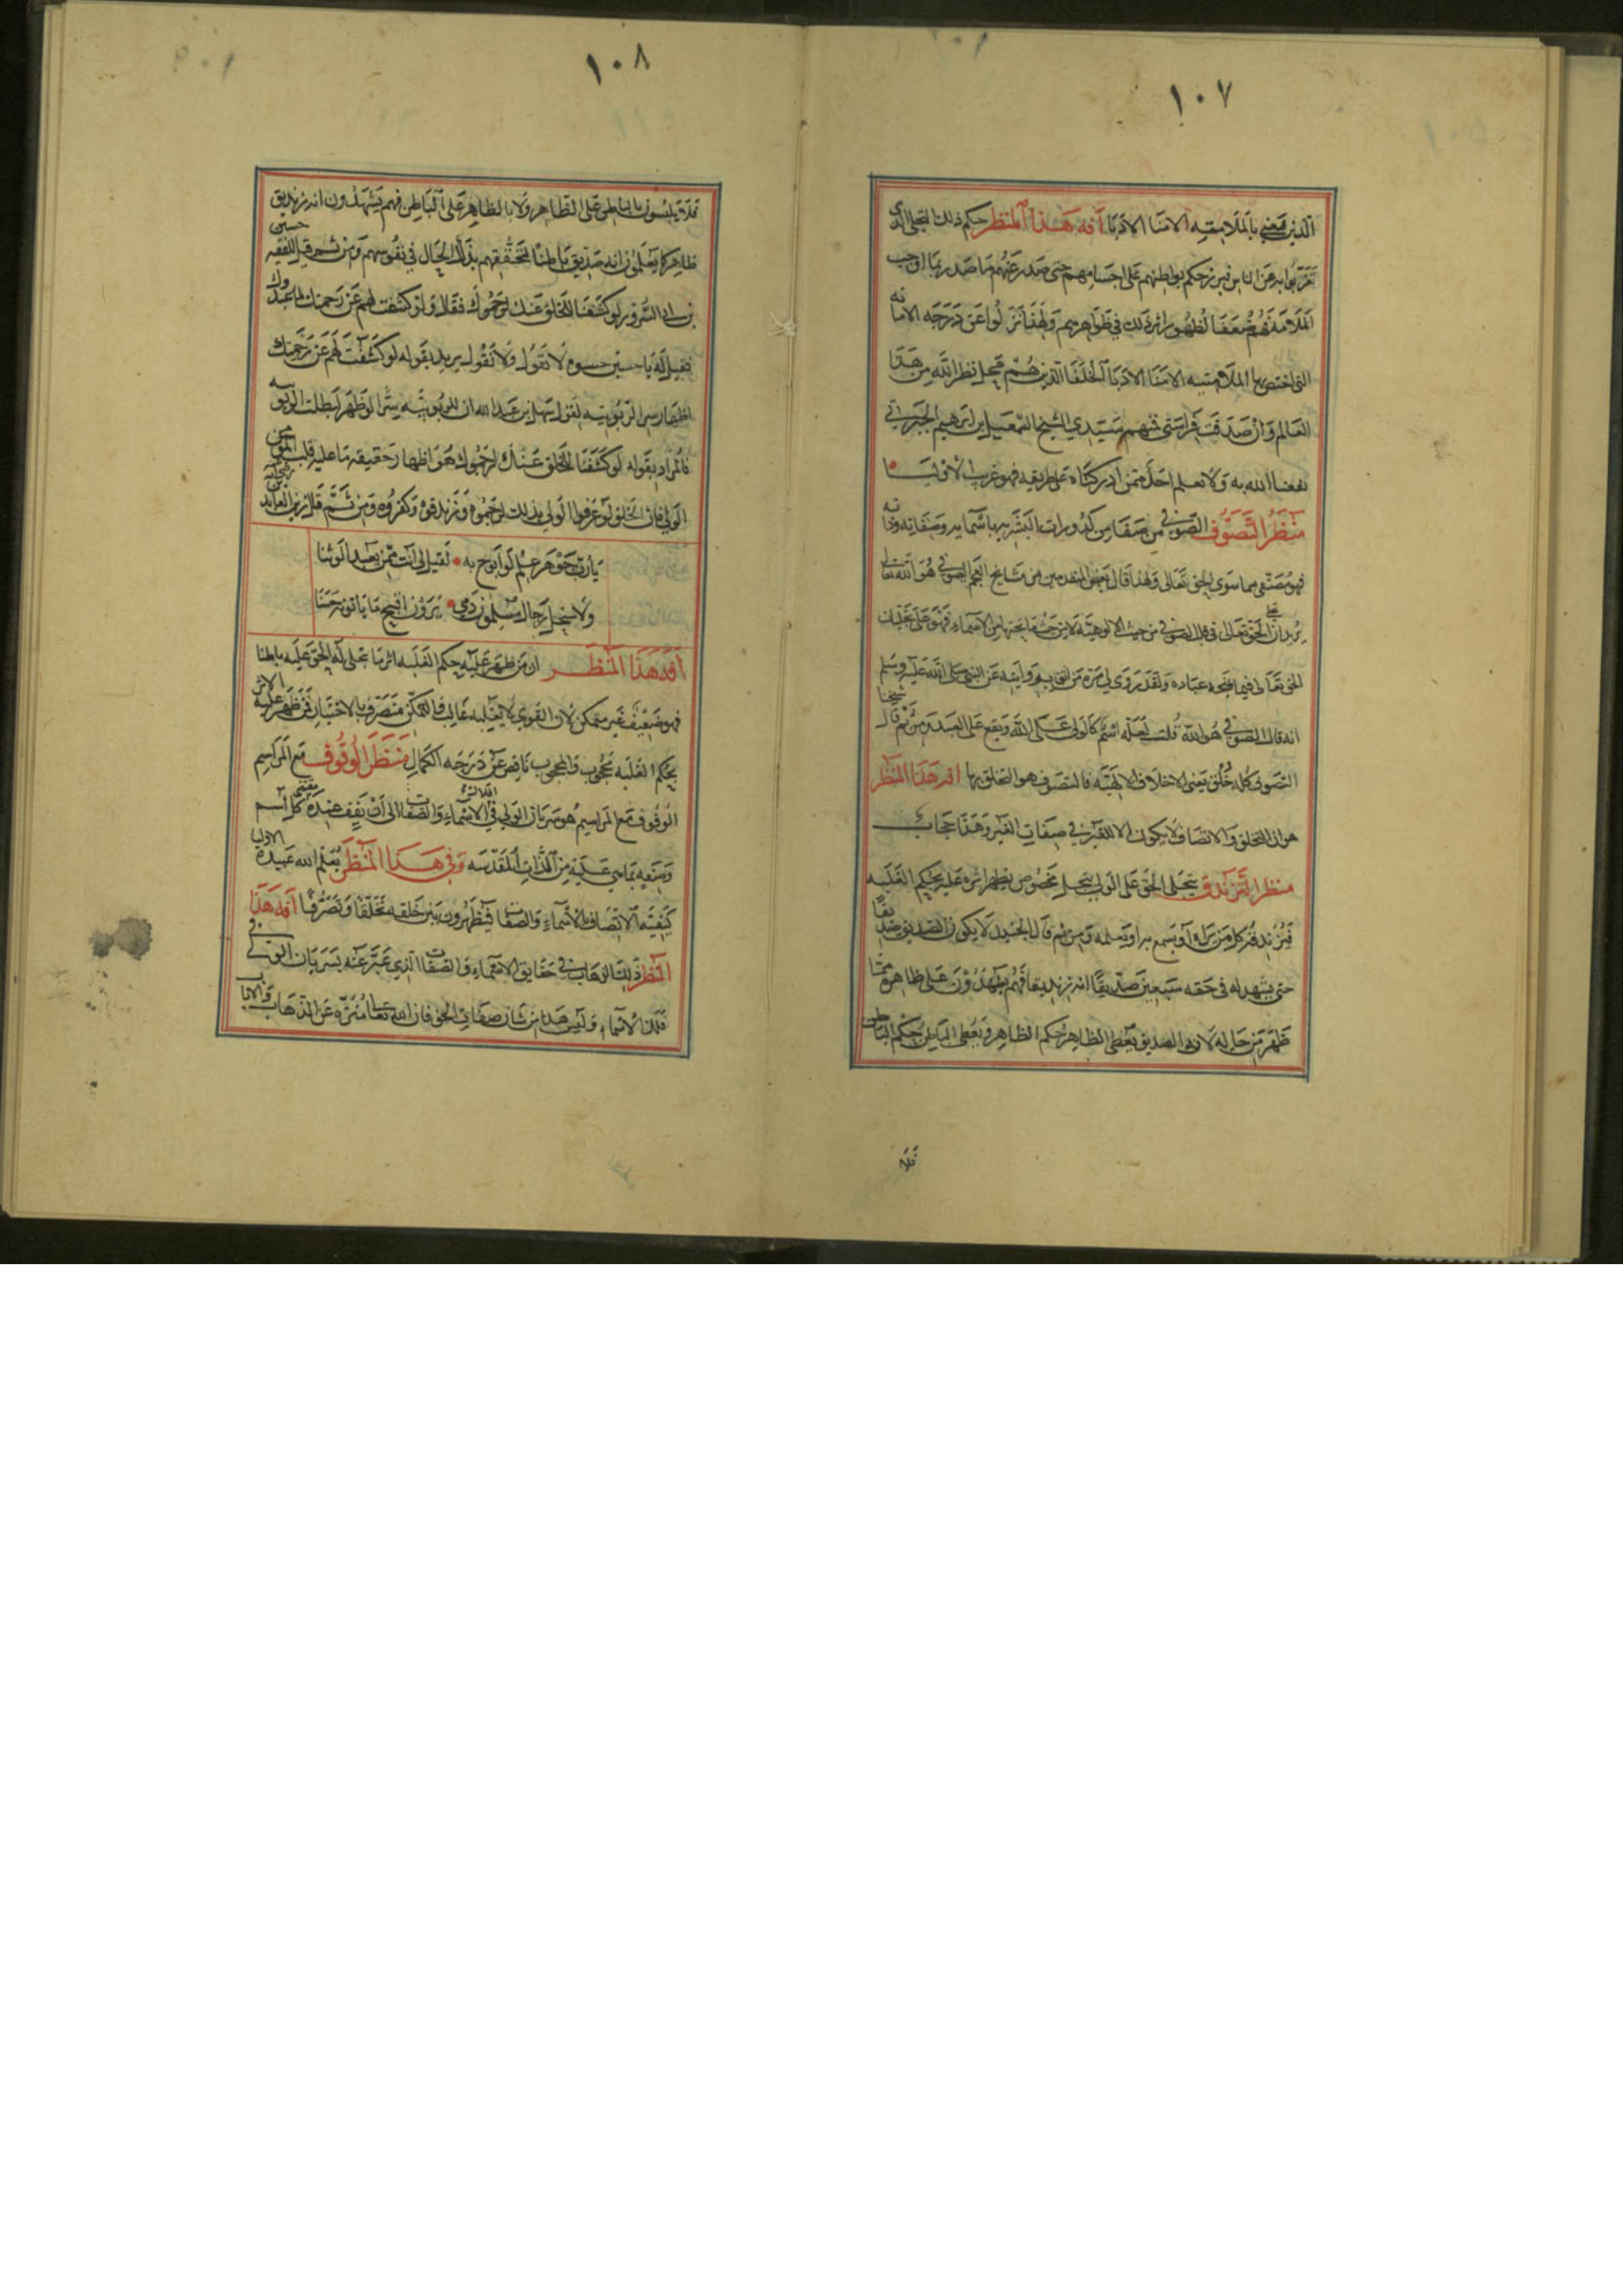 ١٠٧
الذين نعني بالملامتيه الامنا الادبا آفة هذا المنظر حكم ذلك التجلي الذي
بواطنهم على اجسامهم حتى صدر عنهم ما صدر مما اوجب
الملامة فهم ضعفا لظهور اثر ذلك في ظواهرهم ولهذا نزلوا عن درجه الامانه
التي اختص بها الملامتيه الامنا الادبا الخلفا الذين هم محل نظر الله من هذا
العالم وان صدقت فراستي فمنهم سيدي الشيخ اسمعيل بن ابرهيم الجبرتي
نفعنا الله به ولا نعلم احدا ممن ادركناه على طريقه فهو غريب الاوليا
منظر التصوف الصوفي من صفا من كدورات البشريه باسمايه وصفاته وذاته
فهو مصفى مما سوى الحق تعالى ولهذا قال بعض المتقدمين من مشايخ العجم الصوفي هو الله تعالى
يريد ان الحق تعالى في قلب الصوفي من حيث الالوهيه لا من حيث ما تحتها من الاسماء فهو على تجليات
الحق تعالى فيما عباده ولقد روى لي مرة من اثق بروايته عن النبي صلى الله عليه وسلم
انه قال الصوفي هو الله قلت لعله اسم كالولي على الله ويقع على العبد ومن ثم قال شيخنا
التصوف كله خلق يعني الاخلاق الالهيه فالتصوف هو التخلق بها افه هذا المنظر
هو ان التخلق والاتصاف لا يكون الا للغير في صفات الغير وهذا حجاب
منظر التزندق يتجلى الحق على الولي بتجل مخصوص يظهر اثره عليه بحكم الغلبه
فيزندقه كل من يراه او يسمع به او يعلمه ومن ثم قال الجنيد لا يكون الصديق صديقا
حتى يشهد له في حقه سبعين صديقا انه زنديقا فهم يشهدون على ظاهره مما
ظهر من حاله لان الصديق يعطي الظاهر حكم الظاهر ويعطي الباطن حكم الباطن
فلا
١٠٨
فلا يلبسون بالباطن على الظاهر ولا بالظاهر على الباطن فهم يشهدون انه زنديق
ظاهرا كما يعلمون انه صديق باطنا لتحققهم بذلك الحال في نفوسهم ومن ثم قيل للفقيه حسين
بن السرور لو كشفنا للخلق عنك لرجموك فقال ولو كشفت لهم عن رحمتك لما عبدوك
فقيل له يا حسين حسوه لا تقول ولا نقول يريد بقوله لو كشفت لهم عن رحمتك
اظهار سر الربوبيه لقول سهل بن عبد الله ان للربوبيه سرا لو ظهر لبطلت الربوبيه
فالمراد بقوله لو كشفنا للخلق عنك لرجموك هو اظهار حقيقه ما عليه قلب المومن
الولي فان الخلق لو عرفوا الولي بذلك لرجموه وزندقوه وكفروه ومن ثم قال زين العابدين رضي الله عنه
يا رب جوهر علم لو ابوح به لقيل لي انت ممن يعبد الوثنا
ولاستحل رجال مسلمون دمي يرون اقبح ما ياتونه حسنا
آفة هذا المنظر ان من ظهر عليه حكم الغلبه اثر ما تجلى له الحق عليه باطنا
فهو ضعيف غير متمكن لان القوي لا يغلبه غالب فالمتمكن متصرف بالاختيار فمن ظهر عليه الاثر
بحكم الغلبه محجوب والمحجوب ناقص عن درجه الكمال منظر الوقوف مع المراسم
الوقوف مع المراسم هو سريان الولي في الاسماء والصفات الى ان يقف عند كل اسم
من الذات المقدسه وفي هذا المنظر يعلم الله عبيده الاوليا
كيفيه الاتصاف بالاسماء والصفات فيظهرون بين خلقه تخلقا وتصرفا آفة هذا
المنظر ذلك الذهاب في حقايق الاسماء والصفات الذي عبر عنه بسريان الولي في
فلك الاسماء وليس هذا من شان صفات الحق فان الله تعالى منزه عن الذهاب والاياب